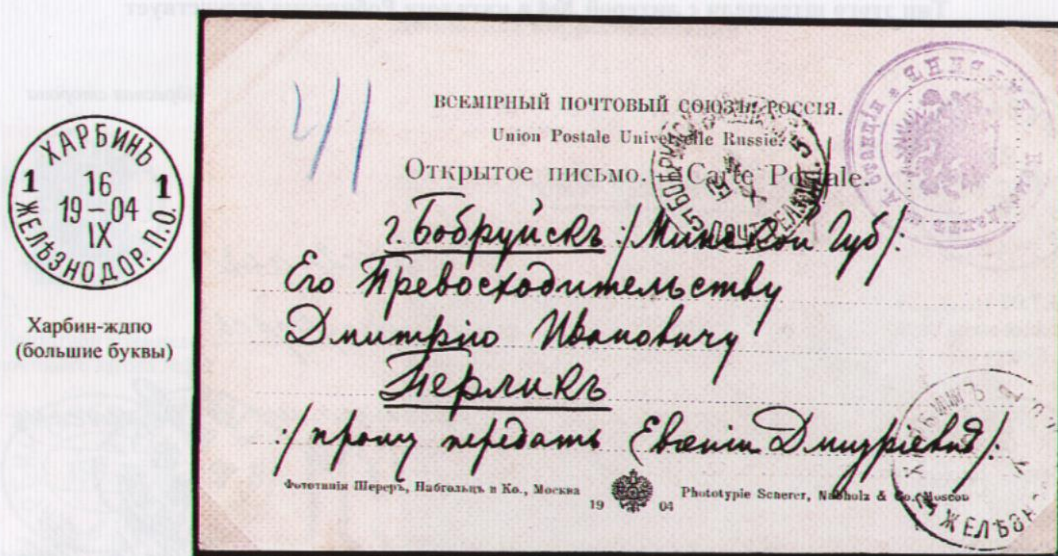 ХАРБИНЪ
1 16 1
19–04
IX
ЖЕЛѢЗНОДОР. П.О.
Харбин-ждпо
(большие буквы)
411
ВСЕМІРНЫЙ ПОЧТОВЫЙ СОЮЗЪ. РОССІЯ.
Union Postale Universelle Russie.
Открытое письмо. — Carte Postale.
г. Бобруйскъ :/Минской Губ/:
Его Превосходительству
Дмитрію Ивановичу
Перликъ
:/прошу передать Евгеніи Дмитріевнѣ/:
Фототипія Шереръ, Набгольцъ и Ко., Москва
19 04
Phototypie Scherer, Nabholz & Co. Moscou
ХАРБИНЪ
ЖЕЛѢЗН